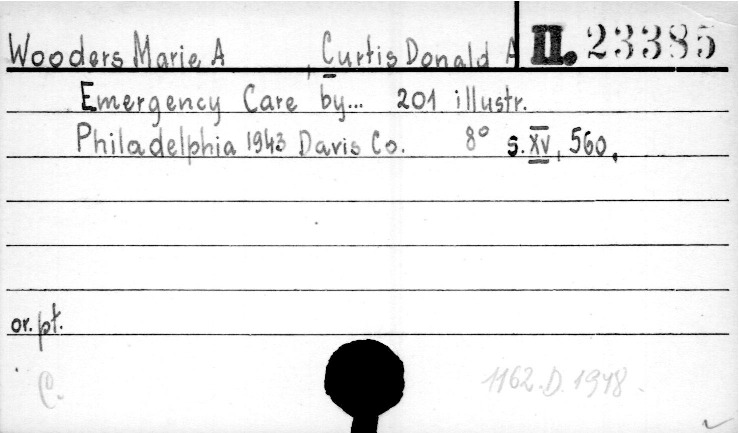 Wooders Marie A , Curtis Donald A II. 23385
Emergency Care by... 201 illustr.
Philadelphia 1943 Davis Co. 8° s. XV, 560.
or. pt.
C. 1162.D.1948.